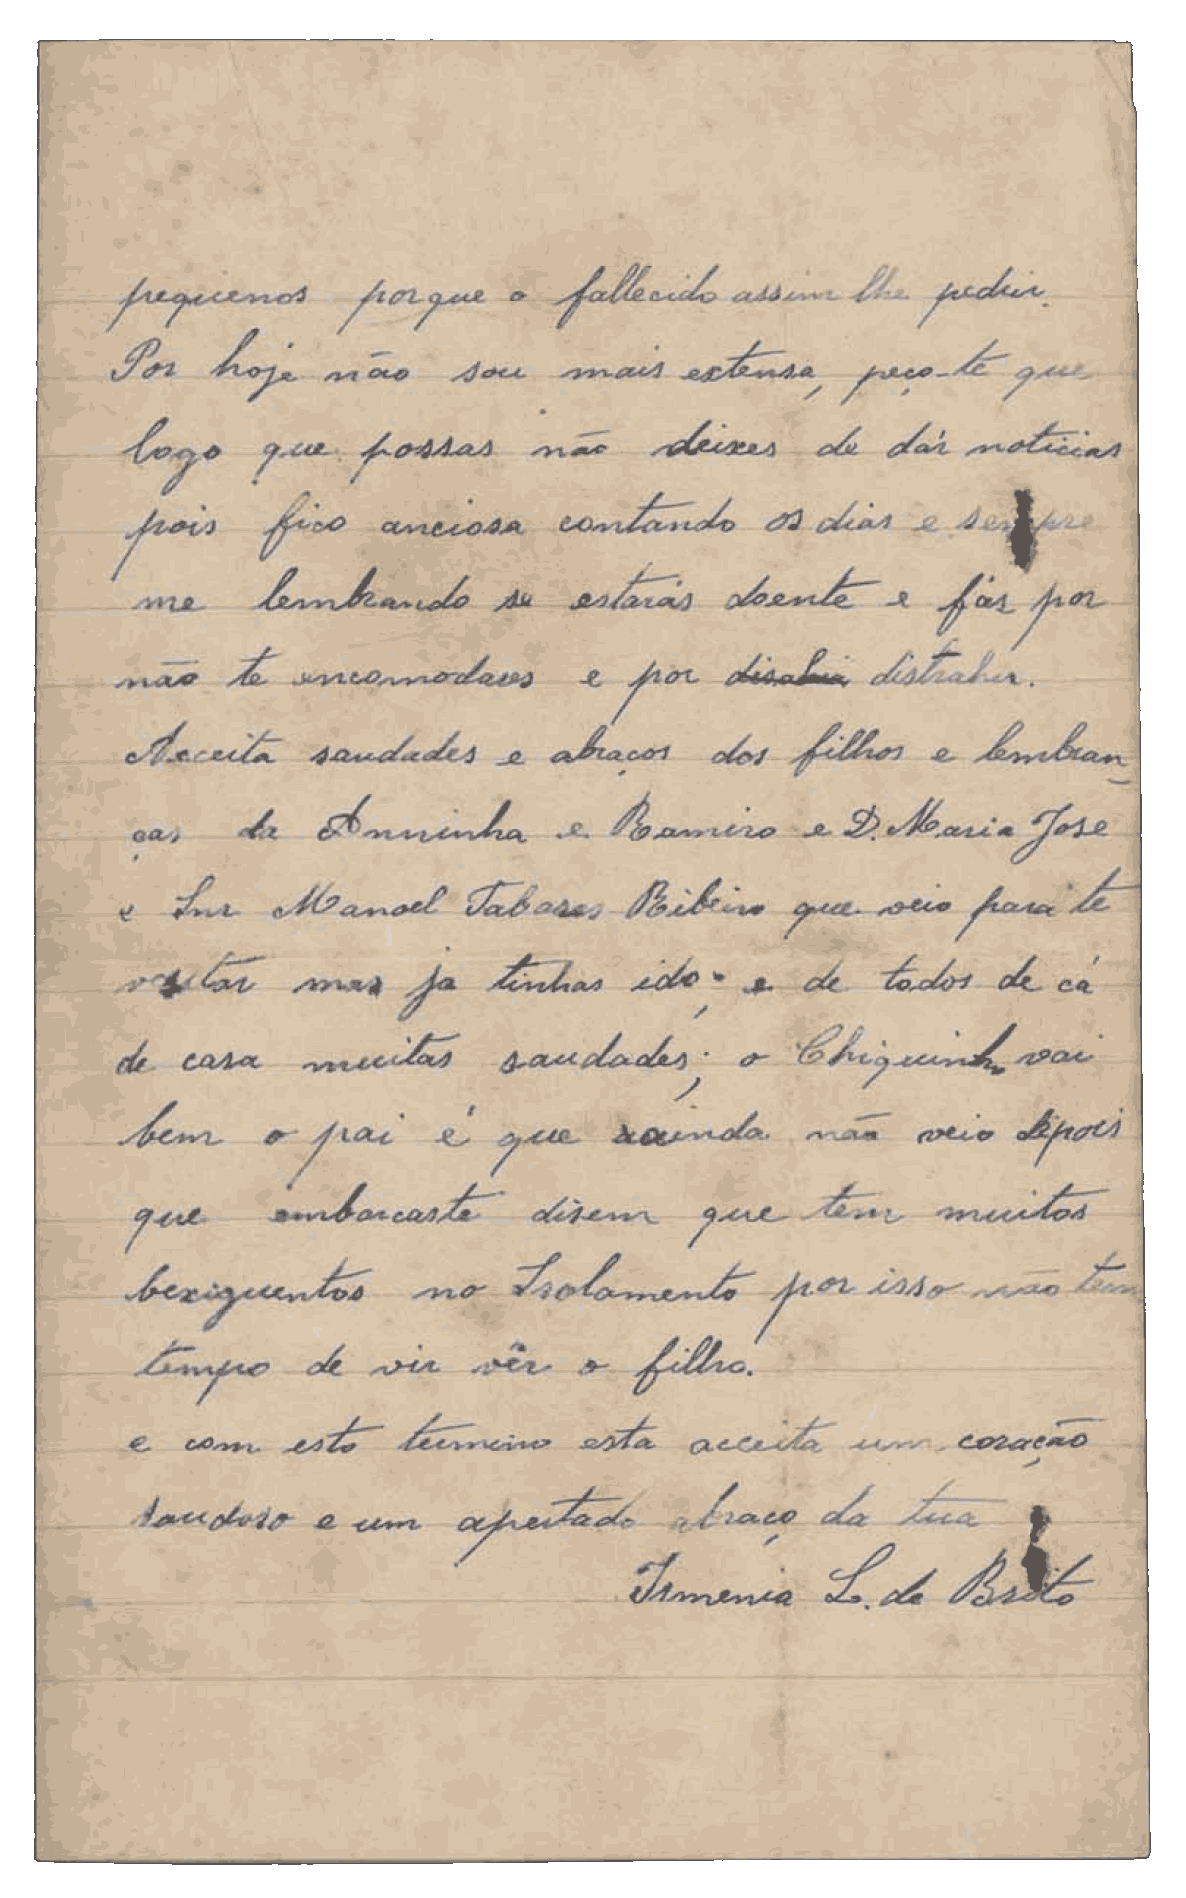 pequenos porque o fallecido assim lhe pediu.
Por hoje não sou mais extensa, peço-te que
logo que possas não deixes de dár noticias
pois fico anciosa contando os dias e sempre
me lembrando se estarás doente e fás por
não te encomodares e por distrahir.
Acceita saudades e abraços dos filhos e lembran_
ças da Anninha e Ramiro e D. Maria Jose
e Snr Manoel Tabares Ribeiro que veio para te
vesitar mas ja tinhas ido; e de todos de cá
de casa muitas saudades; o Chiquinho vai
bem o pai é que ainda não veio depois
que embarcaste disem que tem muitos
bexiguentos no Isolamento por isso não tem
tempo de vir vêr o filho.
e com esto termino esta acceita um coração
saudoso e um apertado abraço da tua
Ismenia L. de Brito